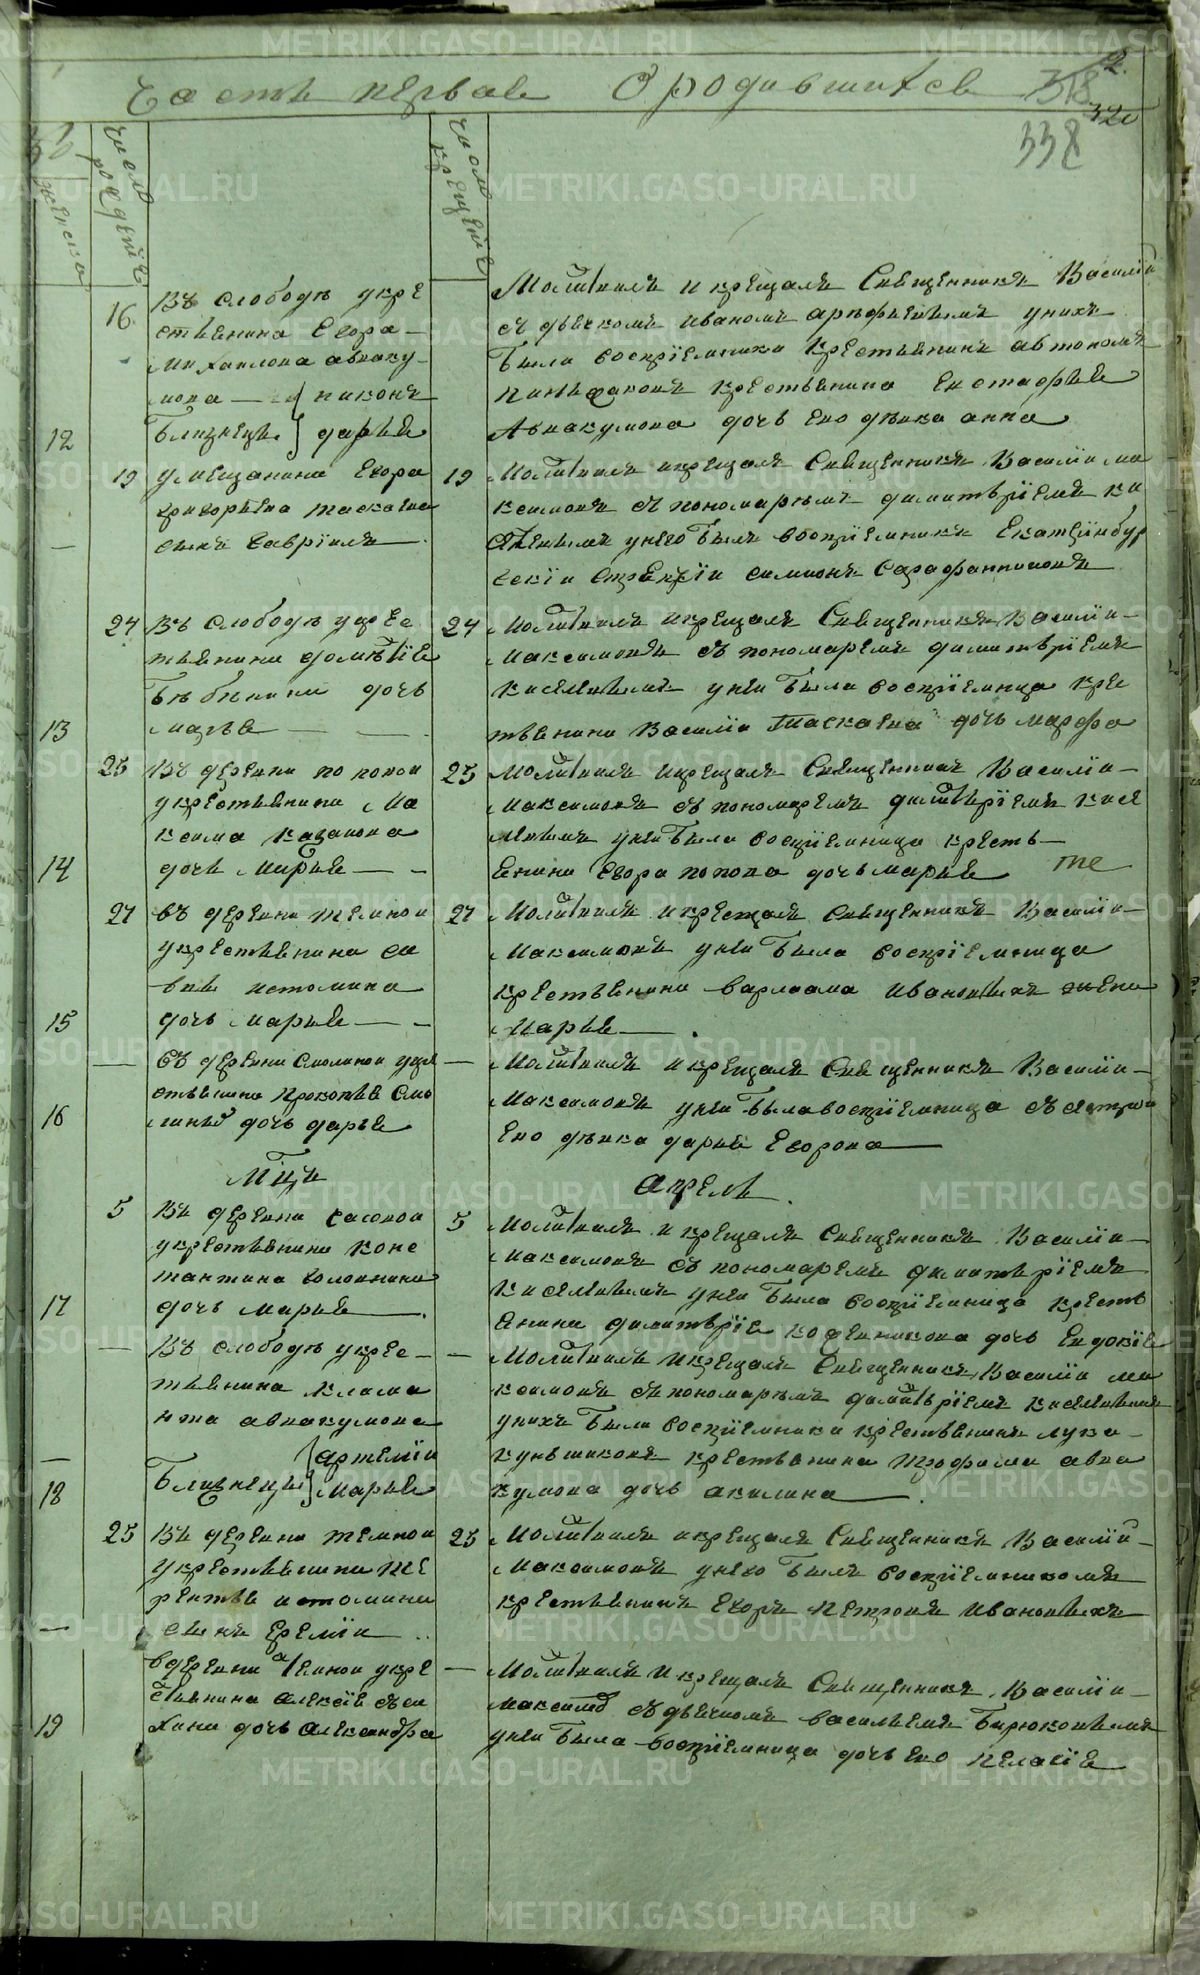 Часть первая О родившихся
318
320
338
женска
число рожденїе
число крещенїе
16 Въ слободѣ укре
ственина Егора
Михаилова авваку
мова — никонъ
12 близнецы дарья
Молитвилъ и крещалъ Священникъ Василїи
съ дьячкомъ иваномъ арефьевымъ у нихъ
были воспрїемники крестьянинъ автономъ
крестьянина Евстафья
Авакумова дочь ево дѣвка анна
19 у мещанина Егора
григорьева таскаева
сынъ гаврїилъ
19 Молитвилъ и крещалъ Священникъ Василїи ма
ксимовъ съ пономаремъ димитрїемъ ки
селевымъ у него былъ воспрїемникъ Екатеринбур
симионъ
24 Въ слободѣ укрес
тьянина дометїя
бабкина дочь
13 марья
24 Молитвилъ и крещалъ Священникъ Василїи
Максимовъ съ пономаремъ димитрїемъ
киселевымъ у неи была воспрїемница крес
тьянина Василїя таскаева дочь марфа
25 Въ деревни поповои
у крестьянина Ма
ксима казанова
14 дочь Марья
25 Молитвилъ и крещалъ Священникъ Василїи
Максимовъ съ пономаремъ димитрїемъ кисе
левымъ у неи была воспрїемница кресть
енина Егора попова дочь марья те
27 въ деревни темнои
у крестьянина са
вы истомина
15 дочь Марья
27 Молитвилъ и крещалъ Священникъ Василїи
Максимовъ у неи была воспрїемница
крестьянина варлаама ивановыхъ жена
Марья
— въ деревни Смолинои укре
стьянина Прокопья Смо
16 лина дочь дарья
— Молитвилъ и крещалъ Священникъ Василїи
Максимовъ у неи была воспрїемница сестра
Ево дѣвка дарья Егорова
Мцъ Апрель
5 Въ деревни сосновои
у крестьянина конс
тантина головнина
17 дочь марья
5 Молитвилъ и крещалъ Священникъ Василїи
Максимовъ съ пономаремъ димитрїемъ
киселевымъ у неи была воспрїемница кресть
енина димитрїя кожевникова дочь Евдокїя
— Въ слободѣ укрес
тьянина клима
нта аввакумова
— артемїи
18 близнецы марья
— Молитвилъ и крещалъ Священникъ Василїи ма
ксимовъ съ пономаремъ димитрїемъ киселевымъ
у нихъ были воспрїемники крестьянинъ лука
кувшиновъ крестьянина трофима авва
кумова дочь акилина
25 Въ деревни темнои
у крестьянина те
рентья истомина
— сынъ Еремїи
25 Молитвилъ и крещалъ Священникъ Василїи
Максимовъ у него былъ воспрїемникомъ
крестьянинъ Егоръ петровъ ивановыхъ
в деревни темнои укре
стьянина алексїя
19 дочь александра
— Молитвилъ и крещалъ Священникъ Василїи
максимов съ дьячкомъ васильемъ бирюковымъ
у неи была воспрїемница дочь ево пелагїя
METRIKI.GASO-URAL.RU